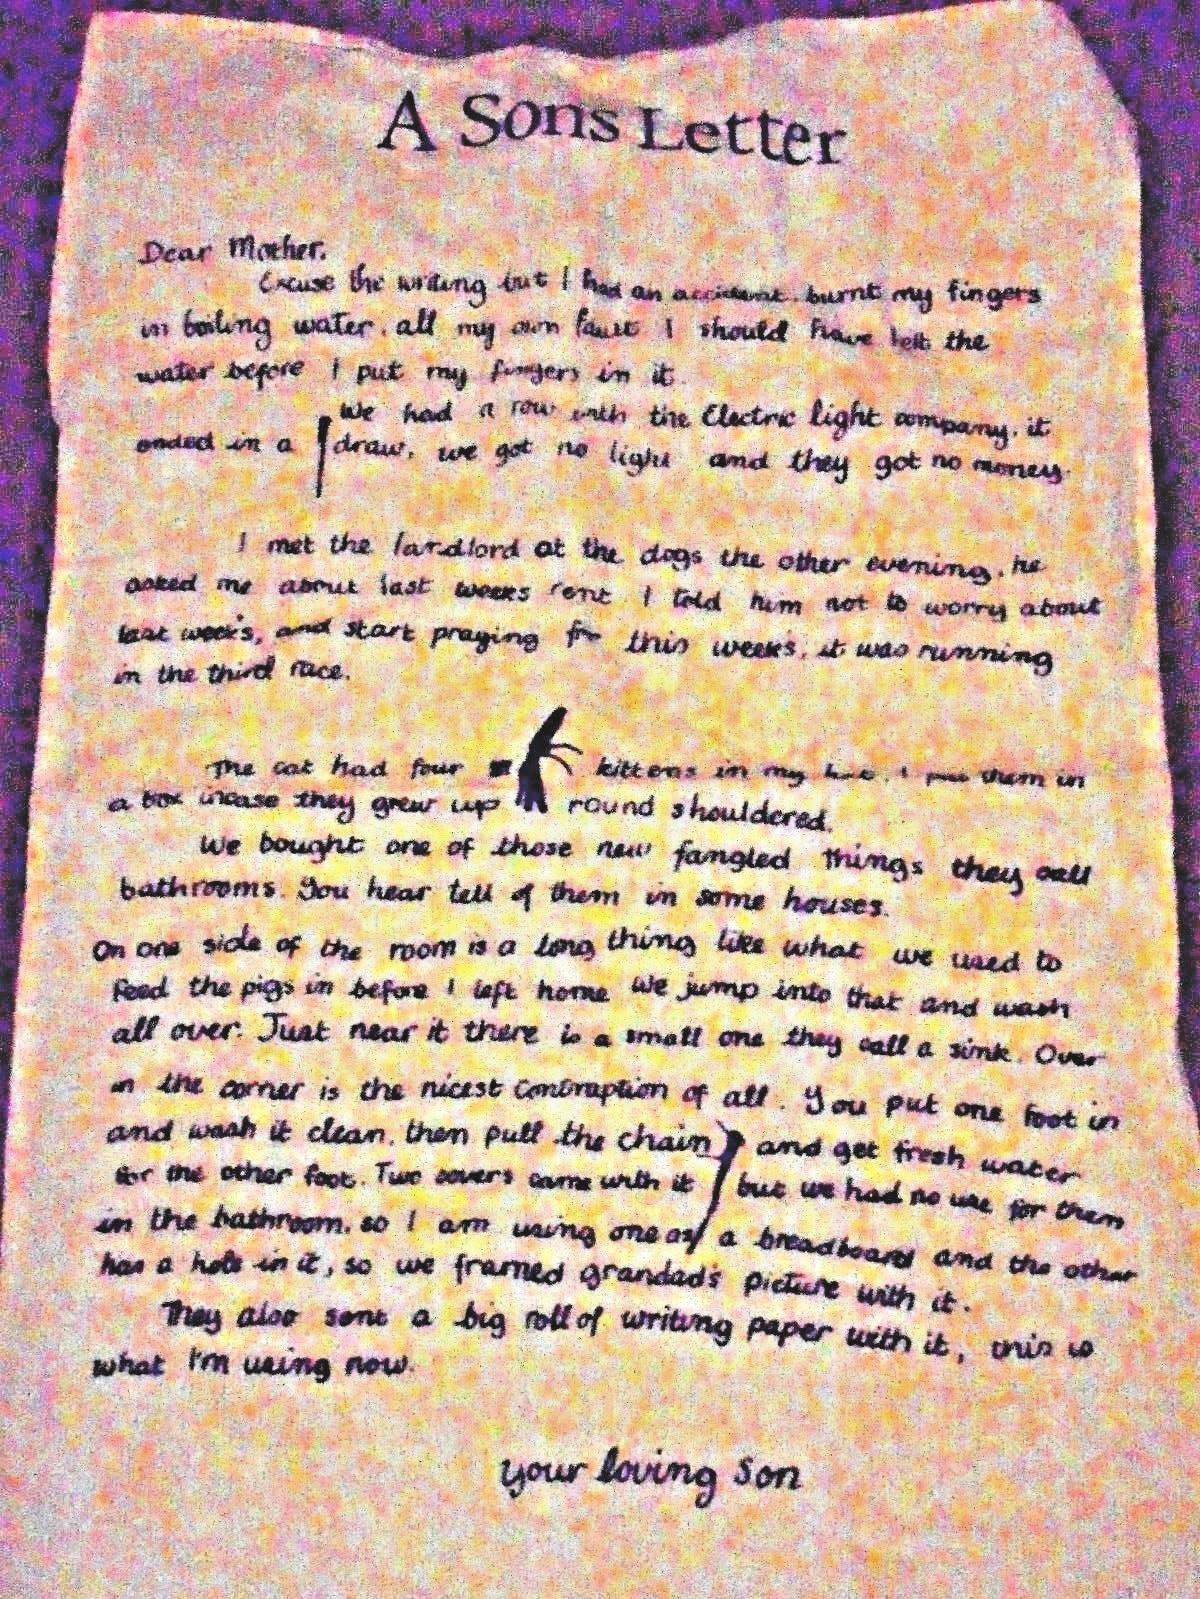 A Sons Letter
Dear Mother,
Excuse the writing but I had an accident, burnt my fingers
in boiling water, all my own fault I should have felt the
water before I put my fingers in it.
We had a row with the Electric light company, it
ended in a draw, we got no light and they got no money.
I met the landlord at the dogs the other evening, he
asked me about last weeks rent. I told him not to worry about
last week's, and start praying for this weeks, it was running
in the third race.
The cat had four kittens in my I put them in
a box incase they grew up round shouldered.
We bought one of those new fangled things they call
bathrooms. You hear tell of them in some houses.
On one side of the room is a long thing like what we used to
feed the pigs in before I left home we jump into that and wash
all over. Just near it there is a small one they call a sink. Over
in the corner is the nicest contraption of all. You put one foot in
and wash it clean, then pull the chain and get fresh water
for the other foot. Two covers came with it but we had no use for them
in the bathroom, so I am using one as a breadboard and the other
has a hole in it, so we framed grandad's picture with it.
They also sent a big roll of writing paper with it, this is
what I'm using now.
your loving son